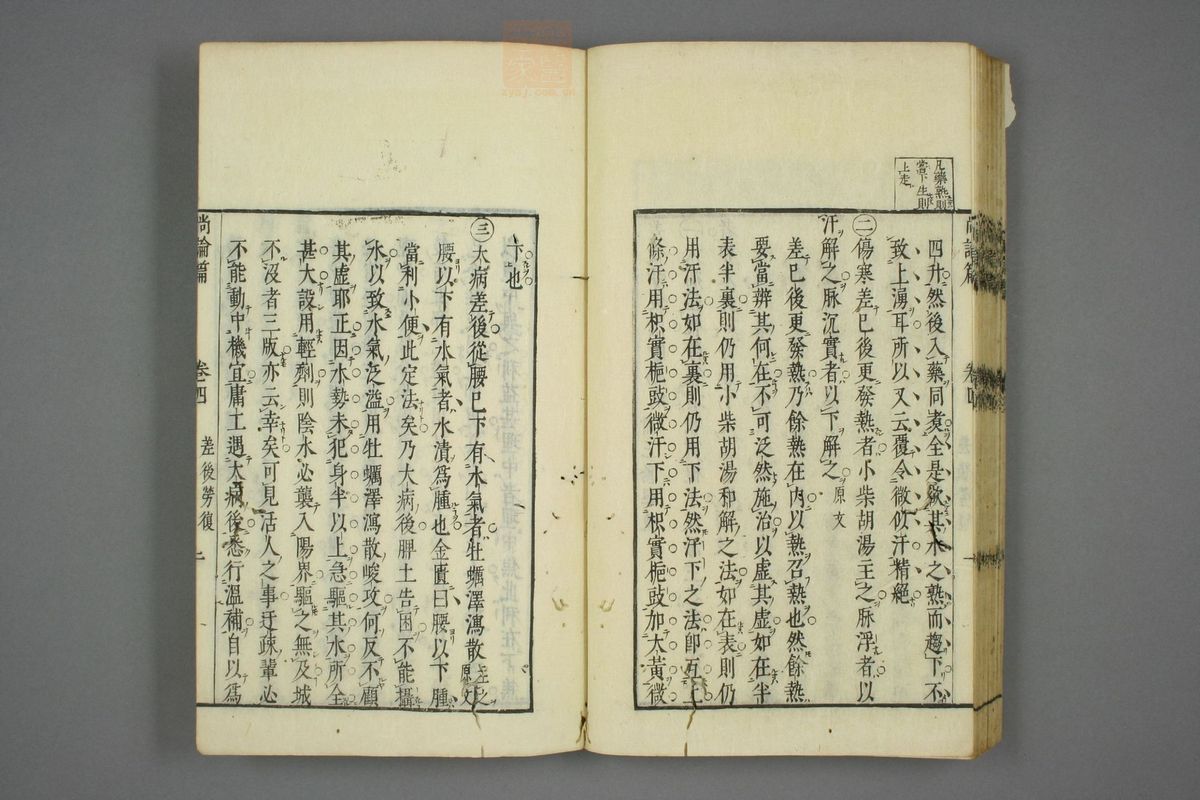 凡藥熟則
當下生則
上走
四升然後入藥同煮全是欲其水之熟而趨下不
致上湧耳所以又云覆令微似汗精絕
㊁傷寒差已後更發熱者小柴胡湯主之脉浮者以
汗解之脉沉實者以下解之 原文
差已後更發熱乃餘熱在內以熱召熱也然餘熱
要當辨其何在不可泛然施治以虛其虛如在半
表半裏則仍用小柴胡湯和解之法如在表則仍
用汗法如在裏則仍用下法然汗下之法即互上
條汗用枳實梔豉微汗下用枳實梔豉加大黃微
下也
㊂大病差後從腰已下有水氣者牡蠣澤瀉散主之 原文
腰以下有水氣者水漬爲腫也金匱曰腰以下腫
當利小便此定法矣乃大病後脾土告困不能攝
水以致水氣泛溢用牡蠣澤瀉散峻攻何反不顧
其虛耶正因水勢未犯身半以上急驅其水所全
甚大設用輕劑則陰水必襲入陽界驅之無及城
不沒者三版亦云幸矣可見活人之事迂疎輩必
不能動中機宜庸工遇大病後悉行溫補自以爲
尚論篇 卷四 差後勞復